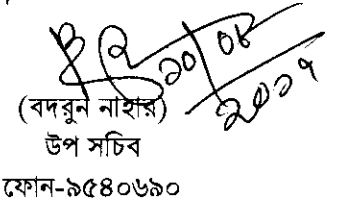 ২০/০৪
২০১৭
(বদরুন নাহার)
উপ সচিব
ফোন-৯৫৪০৬৯০